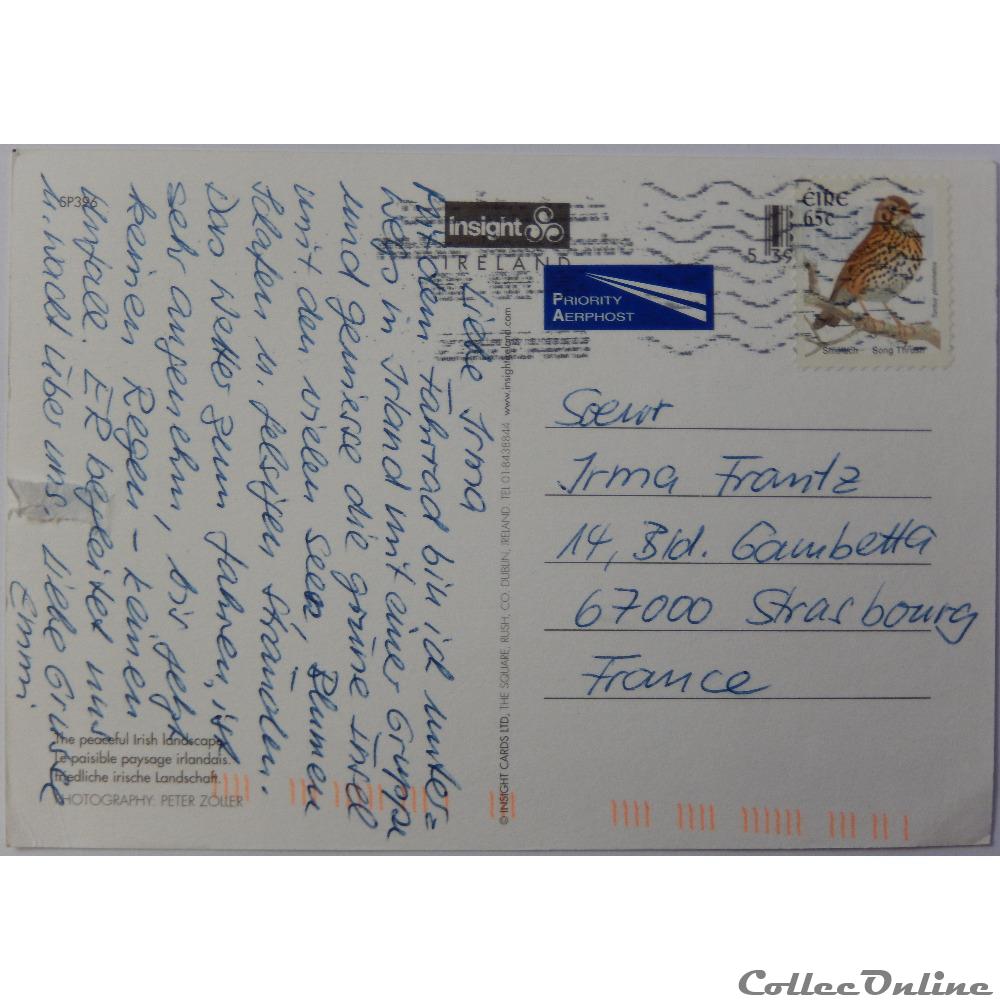 SP396
insight
IRELAND
ÉIRE
65c
Smólach Song Thrush
PRIORITY
AERPHOST
Liebe Irma
Mit dem Fahrrad bin ich unter=
wegs in Irland mit einer Gruppe
und geniesse die grüne Insel
mit den vielen Seen, Blumen
u. felsigen Stränden.
Das Wetter zum fahren, ist
sehr angenehm, bis jetzt
keinen Regen - keinen
Unfall. ER begleitet uns
u. wacht über uns. Liebe Grüsse
Emmi
Soeur
Irma Frantz
14, Bld. Gambetta
67000 Strasbourg
France
The peaceful Irish landscape.
Le paisible paysage irlandais.
Friedliche irische Landschaft.
PHOTOGRAPHY: PETER ZÖLLER
© INSIGHT CARDS LTD, THE SQUARE, RUSH, CO. DUBLIN, IRELAND. TEL 01-8438844 www.insightireland.com
CollecOnline